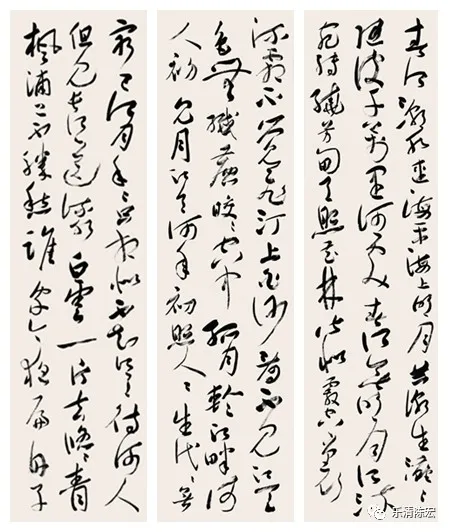 春江潮水連海平海上明月共潮生灩〻
隨波千萬里何處春江無月明江流
宛轉繞芳甸月照花林皆似霰空裏
流霜不覺飛汀上白沙看不見江天一
色無纖塵皎〻空中孤月輪江畔何
人初見月江月何年初照人〻生代〻無
窮已江月年〻 相似不知江月待何人
但見長江送流水白雲一片去悠〻青
楓浦上不勝愁誰家今夜扁舟子
乐清陈宏